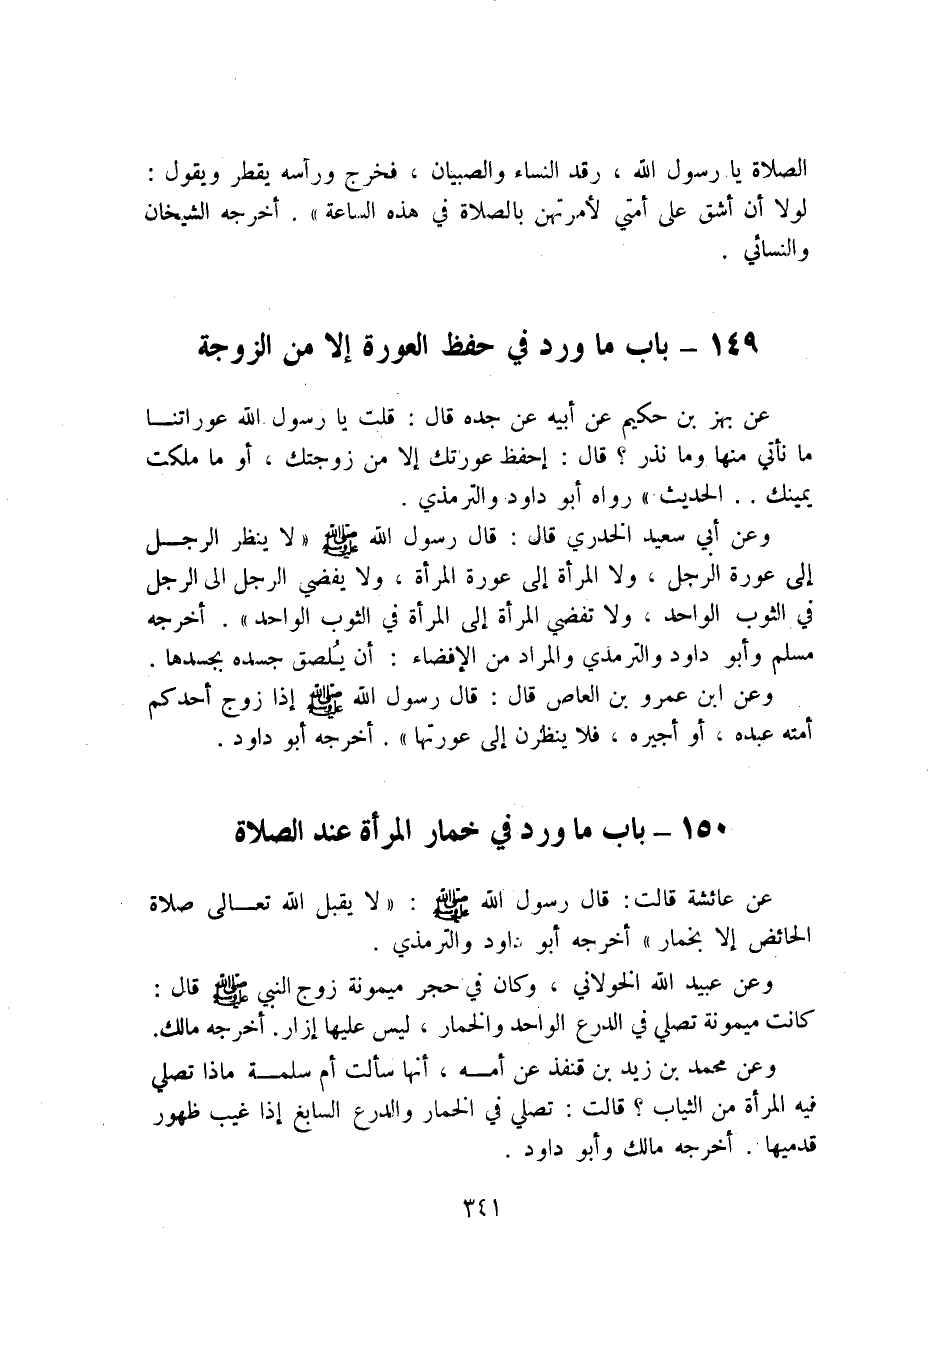 الصلاة يا رسول الله ، رقد النساء والصبيان ، فخرج ورأسه يقطر ويقول :
لولا أن أشق على أمتي لأمرتهن بالصلاة في هذه الساعة » . أخرجه الشيخان
والنسائي .
١٤٩ – باب ما ورد في حفظ العورة إلا من الزوجة
عن بهز بن حكيم عن أبيه عن جده قال : قلت يا رسول الله عوراتنا
ما نأتي منها وما نذر ؟ قال : إحفظ عورتك إلا من زوجتك ، أو ما ملكت
يمينك . . الحديث » رواه أبو داود والترمذي .
وعن أبي سعيد الخدري قال : قال رسول الله ﷺ « لا ينظر الرجل
إلى عورة الرجل ، ولا المرأة إلى عورة المرأة ، ولا يفضي الرجل الى الرجل
في الثوب الواحد ، ولا تفضي المرأة إلى المرأة في الثوب الواحد » . أخرجه
مسلم وأبو داود والترمذي والمراد من الإفضاء : أن يُلصق جسده بجسدها .
وعن ابن عمرو بن العاص قال : قال رسول الله ﷺ إذا زوج أحدكم
أمته عبده ، أو أجيره ، فلا ينظرن إلى عورتها » . أخرجه أبو داود .
١٥٠ – باب ما ورد في خمار المرأة عند الصلاة
عن عائشة قالت : قال رسول الله ﷺ : « لا يقبل الله تعالى صلاة
الحائض إلا بخمار » أخرجه أبو داود والترمذي .
وعن عبيد الله الخولاني ، وكان في حجر ميمونة زوج النبي ﷺ قال :
كانت ميمونة تصلي في الدرع الواحد والخمار ، ليس عليها إزار. أخرجه مالك.
وعن محمد بن زيد بن قنفذ عن أمه ، أنها سألت أم سلمة ماذا تصلي
فيه المرأة من الثياب ؟ قالت : تصلي في الخمار والدرع السابغ إذا غيب ظهور
قدميها . أخرجه مالك وأبو داود .
٣٤١